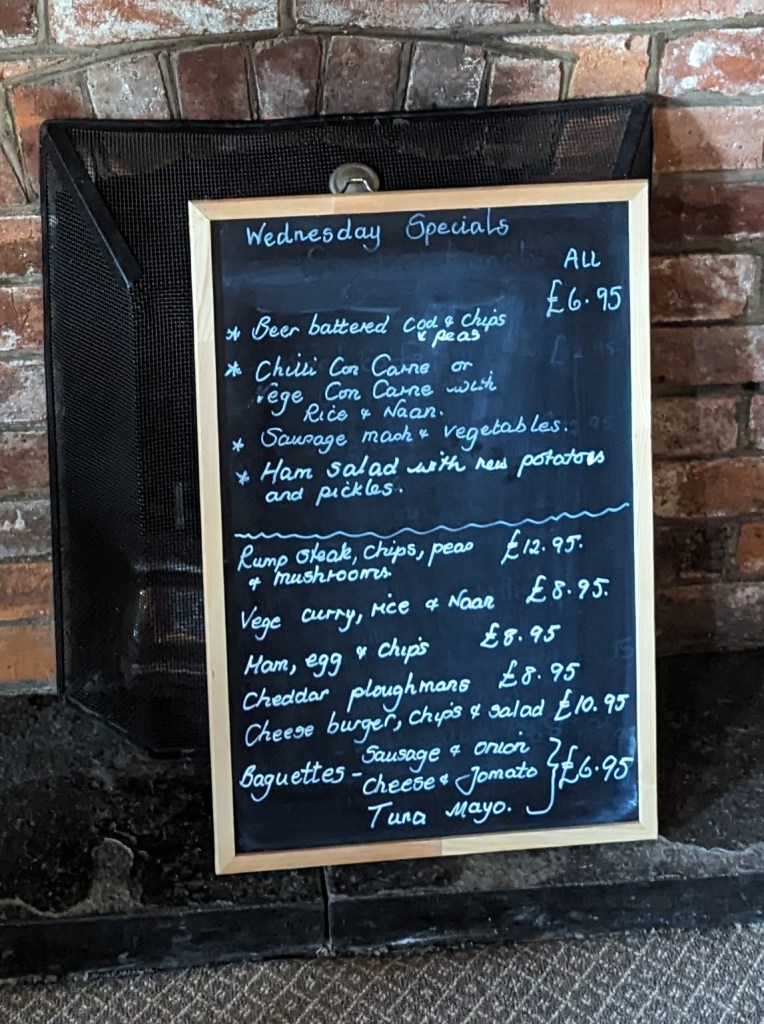 Wednesday Specials
ALL
£6.95
* Beer battered Cod & Chips
& peas
* Chilli Con Carne or
Vege Con Carne with
Rice & Naan.
* Sausage mash & vegetables.
* Ham salad with new potatoes
and pickles.
Rump steak, chips, peas £12.95.
& mushrooms.
Vege curry, rice & Naan £8.95.
Ham, egg & chips £8.95
Cheddar ploughmans £8.95
Cheese burger, chips & salad £10.95
Sausage & onion
Baguettes - Cheese & Tomato } £6.95
Tuna Mayo.